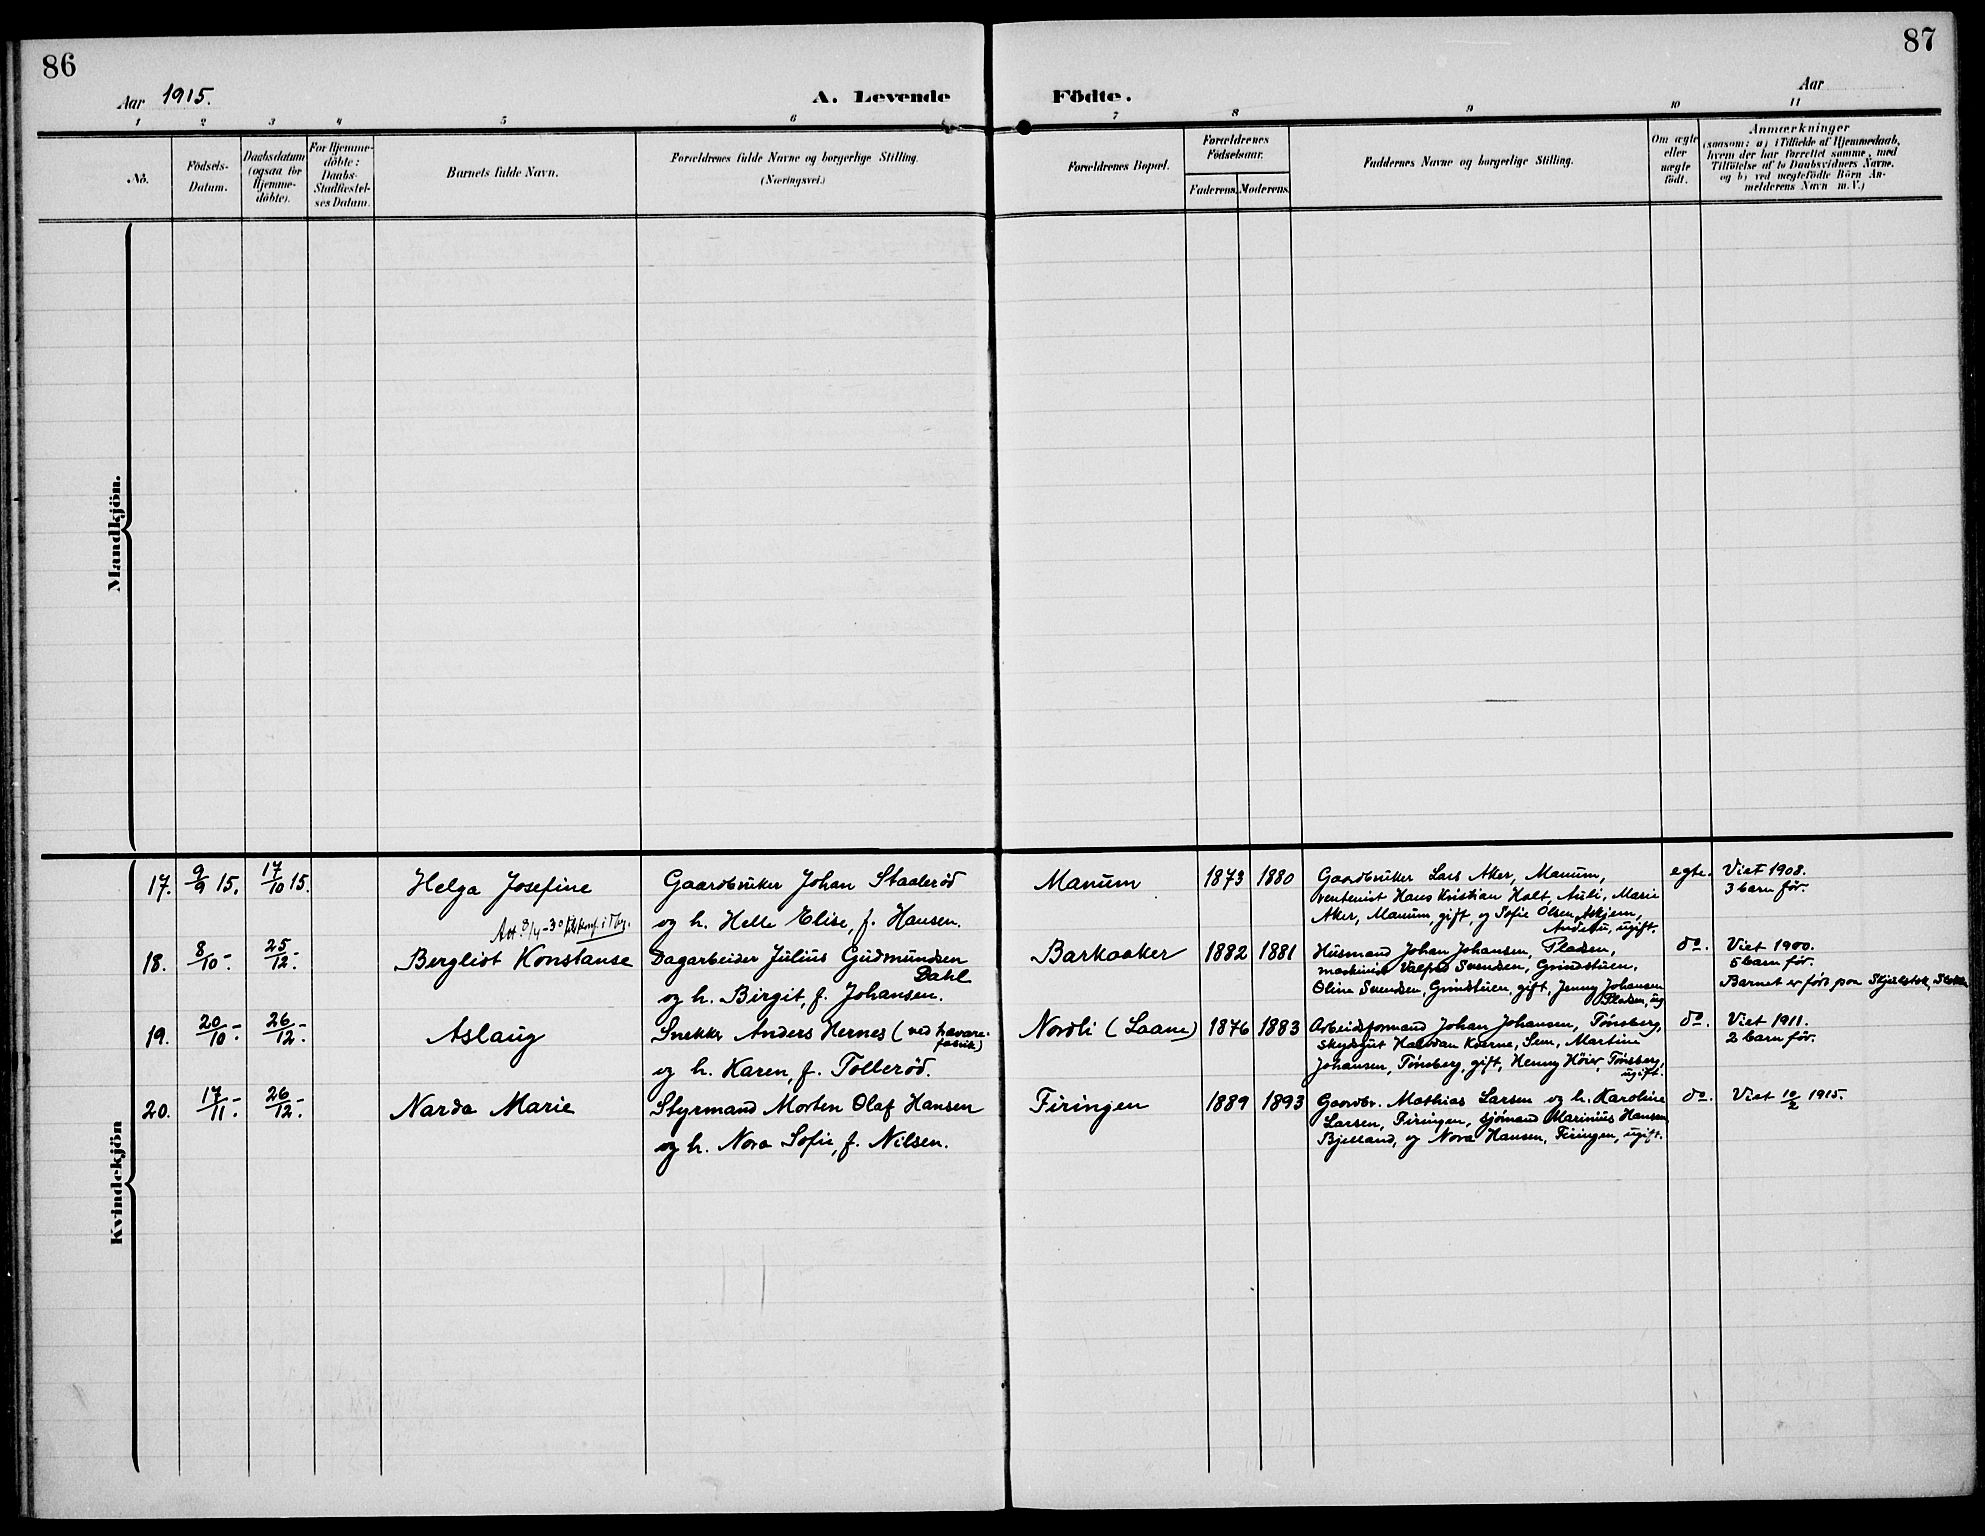 86
87
Aar 1915.
A. Levende Födte.
Aar
1 2 3 4 5 6 7 8 9 10 11
No.
Födsels-
Datum.
Daabsdatum
(ogsaa for
Hjemme-
döbte).
For Hjemme-
döbte:
Daabs-
Stadfæstel-
ses Datum.
Barnets fulde Navn.
Forældrenes fulde Navne og borgerlige Stilling.
(Næringsvei.)
Forældrenes Bopæl.
Forældrenes
Födselsaar.
Faderens. Moderens.
Faddernes Navne og borgerlige Stilling.
Om ægte
eller
uægte
födt.
Anmærkninger
(saasom: a) i Tilfælde af Hjemmedaab,
hvem der har forrettet samme, med
Tilföielse af to Daabsvidners Navne.
og b) ved uægtefödte Börn An-
melderens Navn m. V.)
Mandkjön.
Kvindekjön
17. 9/9 15. 17/10 15. Helga Josefine
Gaardbruker Johan Staalerød
og h. Helle Elise, f. Hansen.
Manum 1873 1880
Gaardbruker Lars Aker, Manum,
Hans Kristian Holt, Auli, Marie
Aker, Manum, gift, og Sofie Olsen Askjem,
ugift.
egte. Viet 1908.
3 barn før.
18. 8/10 - 25/12 - Bergliot Konstanse
Dagarbeider Julius Gudmundsen
Dahl
og h. Birgit, f. Johansen.
Barkaaker 1882 1881
Husmand Johan Johansen, Pladsen,
maskinist Valfred Svendsen, Grindstuen,
Oline Svendsen, Grindstuen, gift, Jenny Johansen
Pladsen, ug
do. Viet 1900.
5 barn før.
Barnet er født paa
19. 20/10 - 26/12 - Aslaug
Snekker Anders Hernes (ved havare-
fabrik)
og h. Karen, f. Tollerød.
Nordli (Laane) 1876 1883
Arbeidsformand Johan Johansen, Tønsberg,
skydsgut Halvdan Kverne, Sem, Martine
Johansen, Tønsberg, gift, Henny Høier, Tønsberg,
ugift.
do. Viet 1911.
2 barn før.
20. 17/11 - 26/12 - Narda Marie
Styrmand Morten Olaf Hansen
og h. Nora Sofie, f. Nilsen.
Firingen 1889 1893
Gaardbr. Mathias Larsen og h. Karoline
Larsen, Firingen, sjømand Marinius Hansen
Bjelland, og Nora Hansen, Firingen, ugift.
do. Viet 10/2 1915.